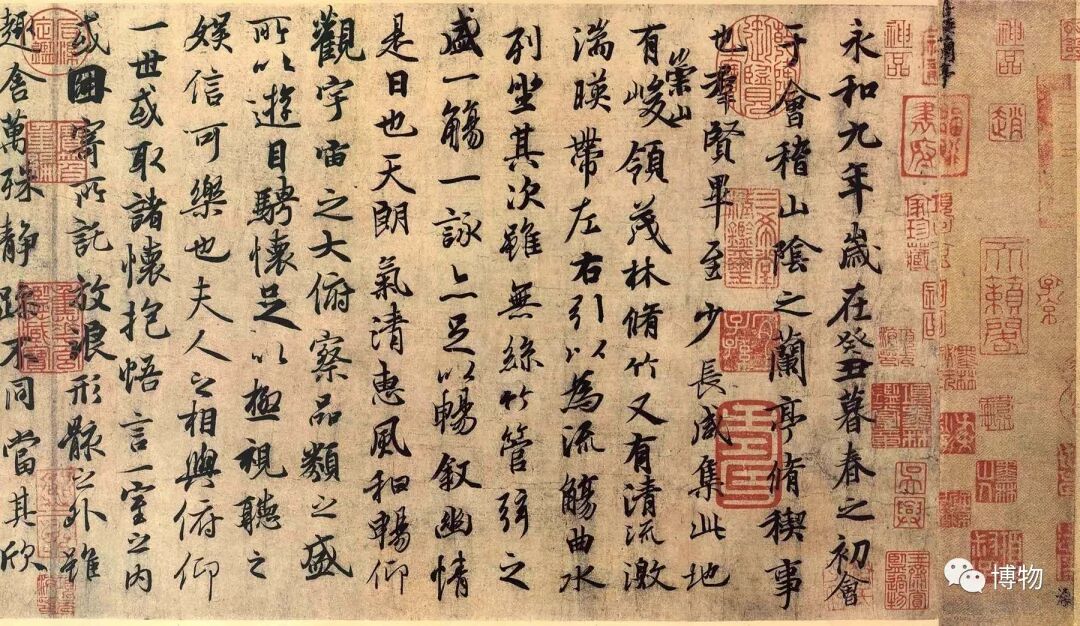 神品
趙
天籟閣
神品
永和九年歲在癸丑暮春之初會
于會稽山陰之蘭亭脩禊事
也羣賢畢至少長咸集此地
有崇山峻領茂林脩竹又有清流激
湍暎帶左右引以為流觴曲水
列坐其次雖無絲竹管弦之
盛一觴一詠亦足以暢叙幽情
是日也天朗氣清惠風和暢仰
觀宇宙之大俯察品類之盛
所以遊目騁懷足以極視聽之
娛信可樂也夫人之相與俯仰
一世或取諸懷抱悟言一室之內
或因寄所託放浪形骸之外雖
趣舍萬殊静躁不同當其欣
博物